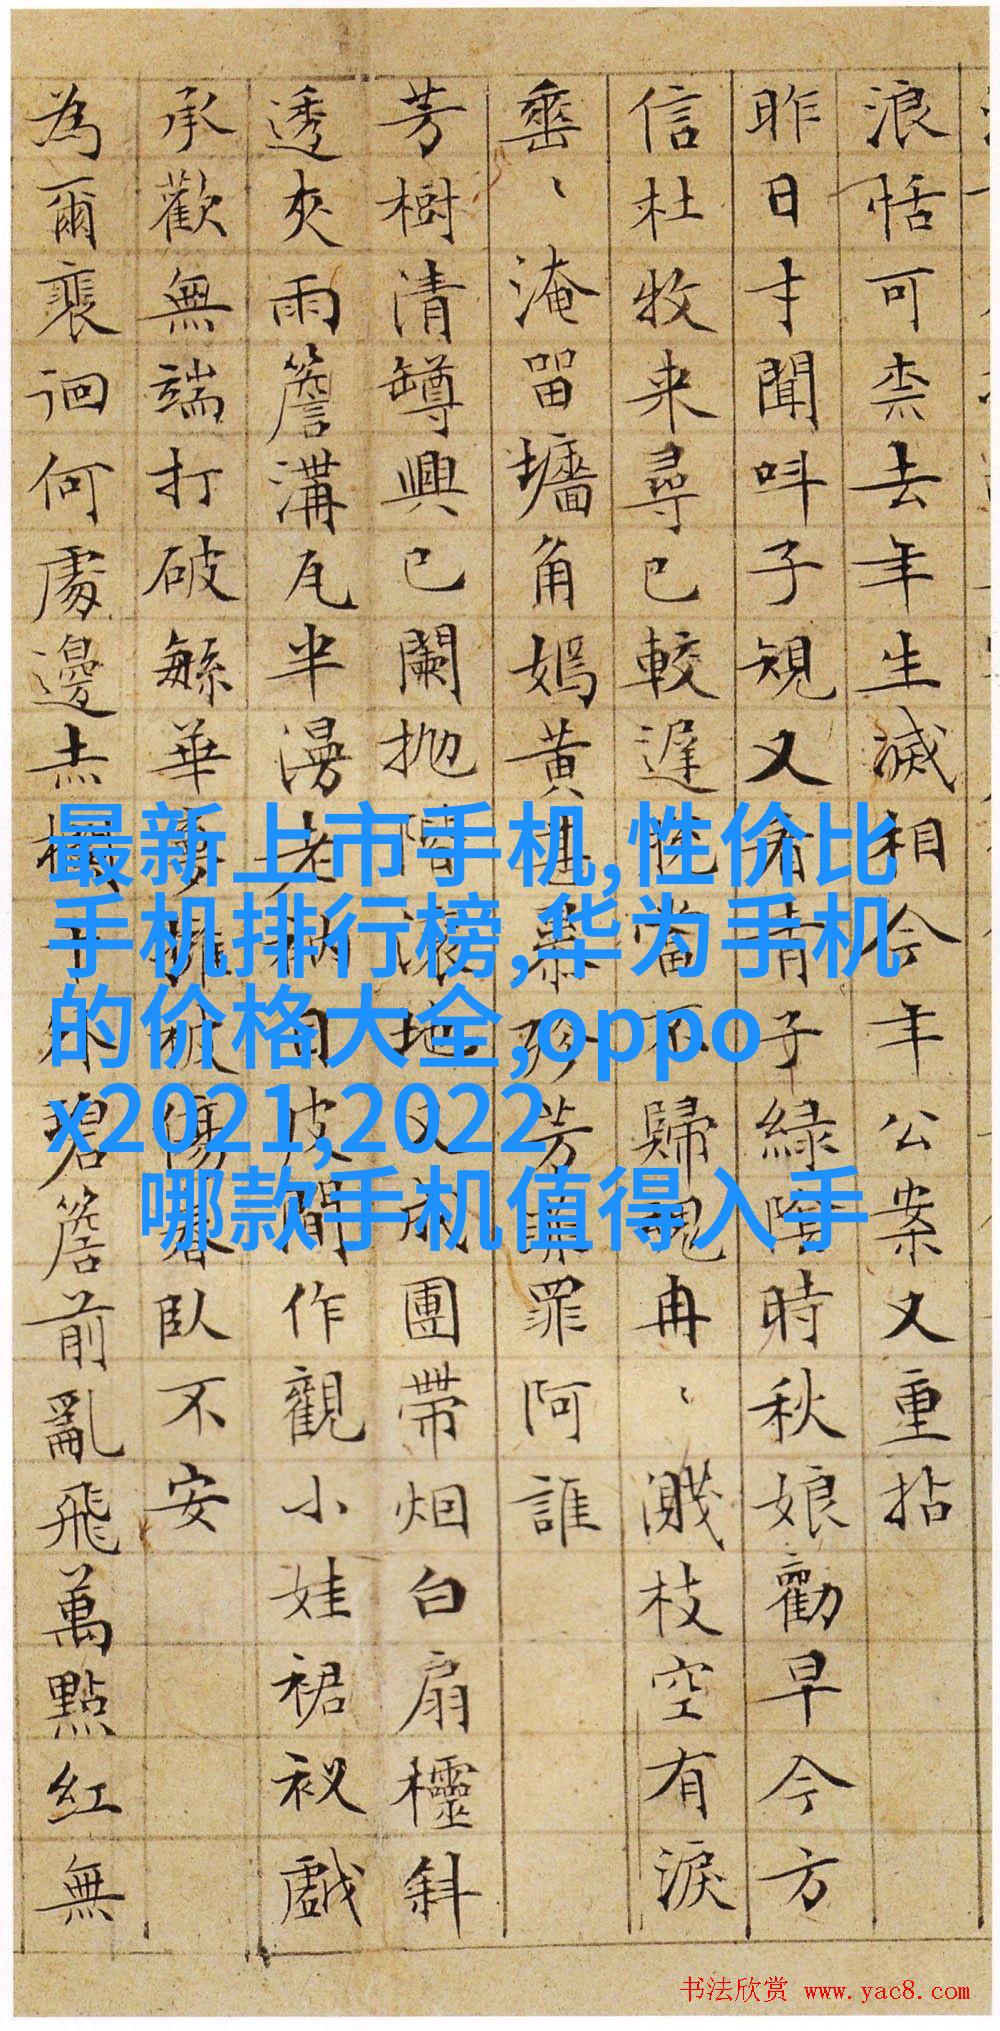 浪恬可柰去年生滅相今年公案又重拈
昨日才聞叫子規又看青子綠陰時秋娘勸早今方
信杜牧来尋已較遲 當不歸魂冉、濺枝空有淚
垂、淹留墻角嫣黄 芳菲罪阿誰
芳樹清罇興已闌抛階滾地又成團帶烟白扇欞斜
透夾雨簷溝瓦半漫老衲目皮間作觀小娃裙衩戲
承歡無端打破緐華夢擁被傷春臥不安
為爾裵徊何處邊赤欄干外碧簷前亂飛萬點紅無
最新上市手机,性价比
手机排行榜,华为手机
的价格大全,oppo
x2021,2022
哪款手机值得入手
书法欣赏 www.yac8.com